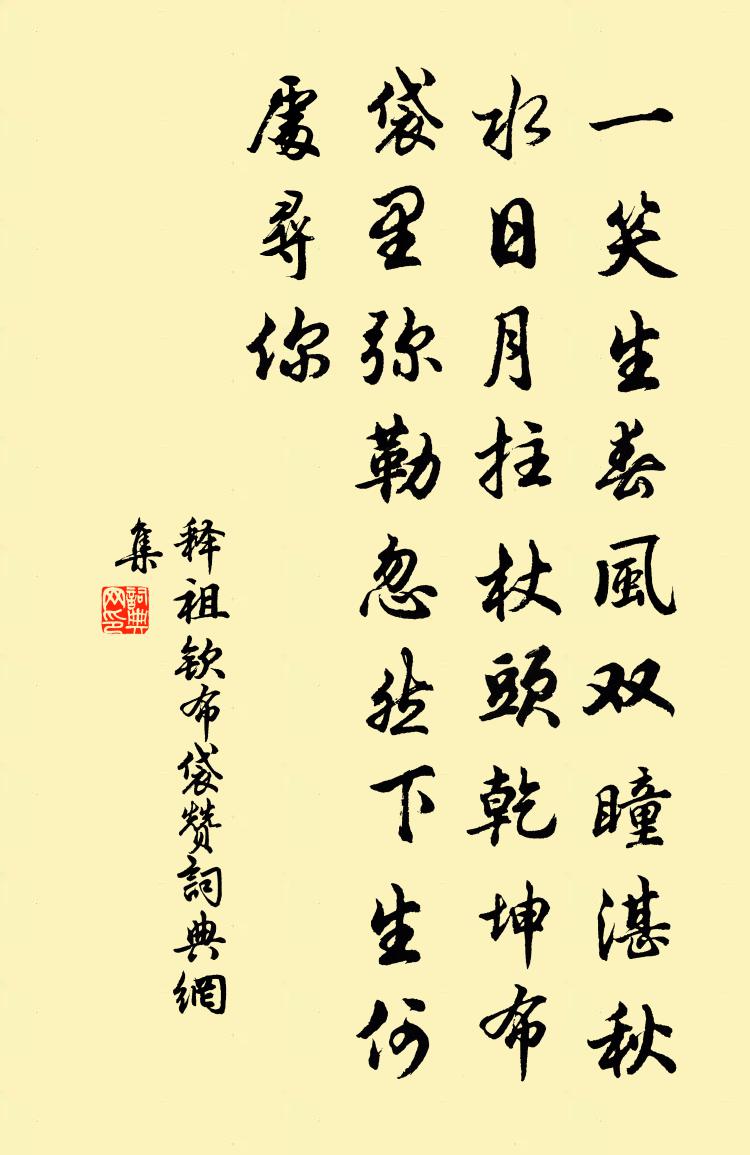 一笑生春風双瞳湛秋
水日月拄杖頭乾坤布
袋里弥勒忽然下生何
處尋你
释祖欽布袋赞詞典網
集
詞典
网印